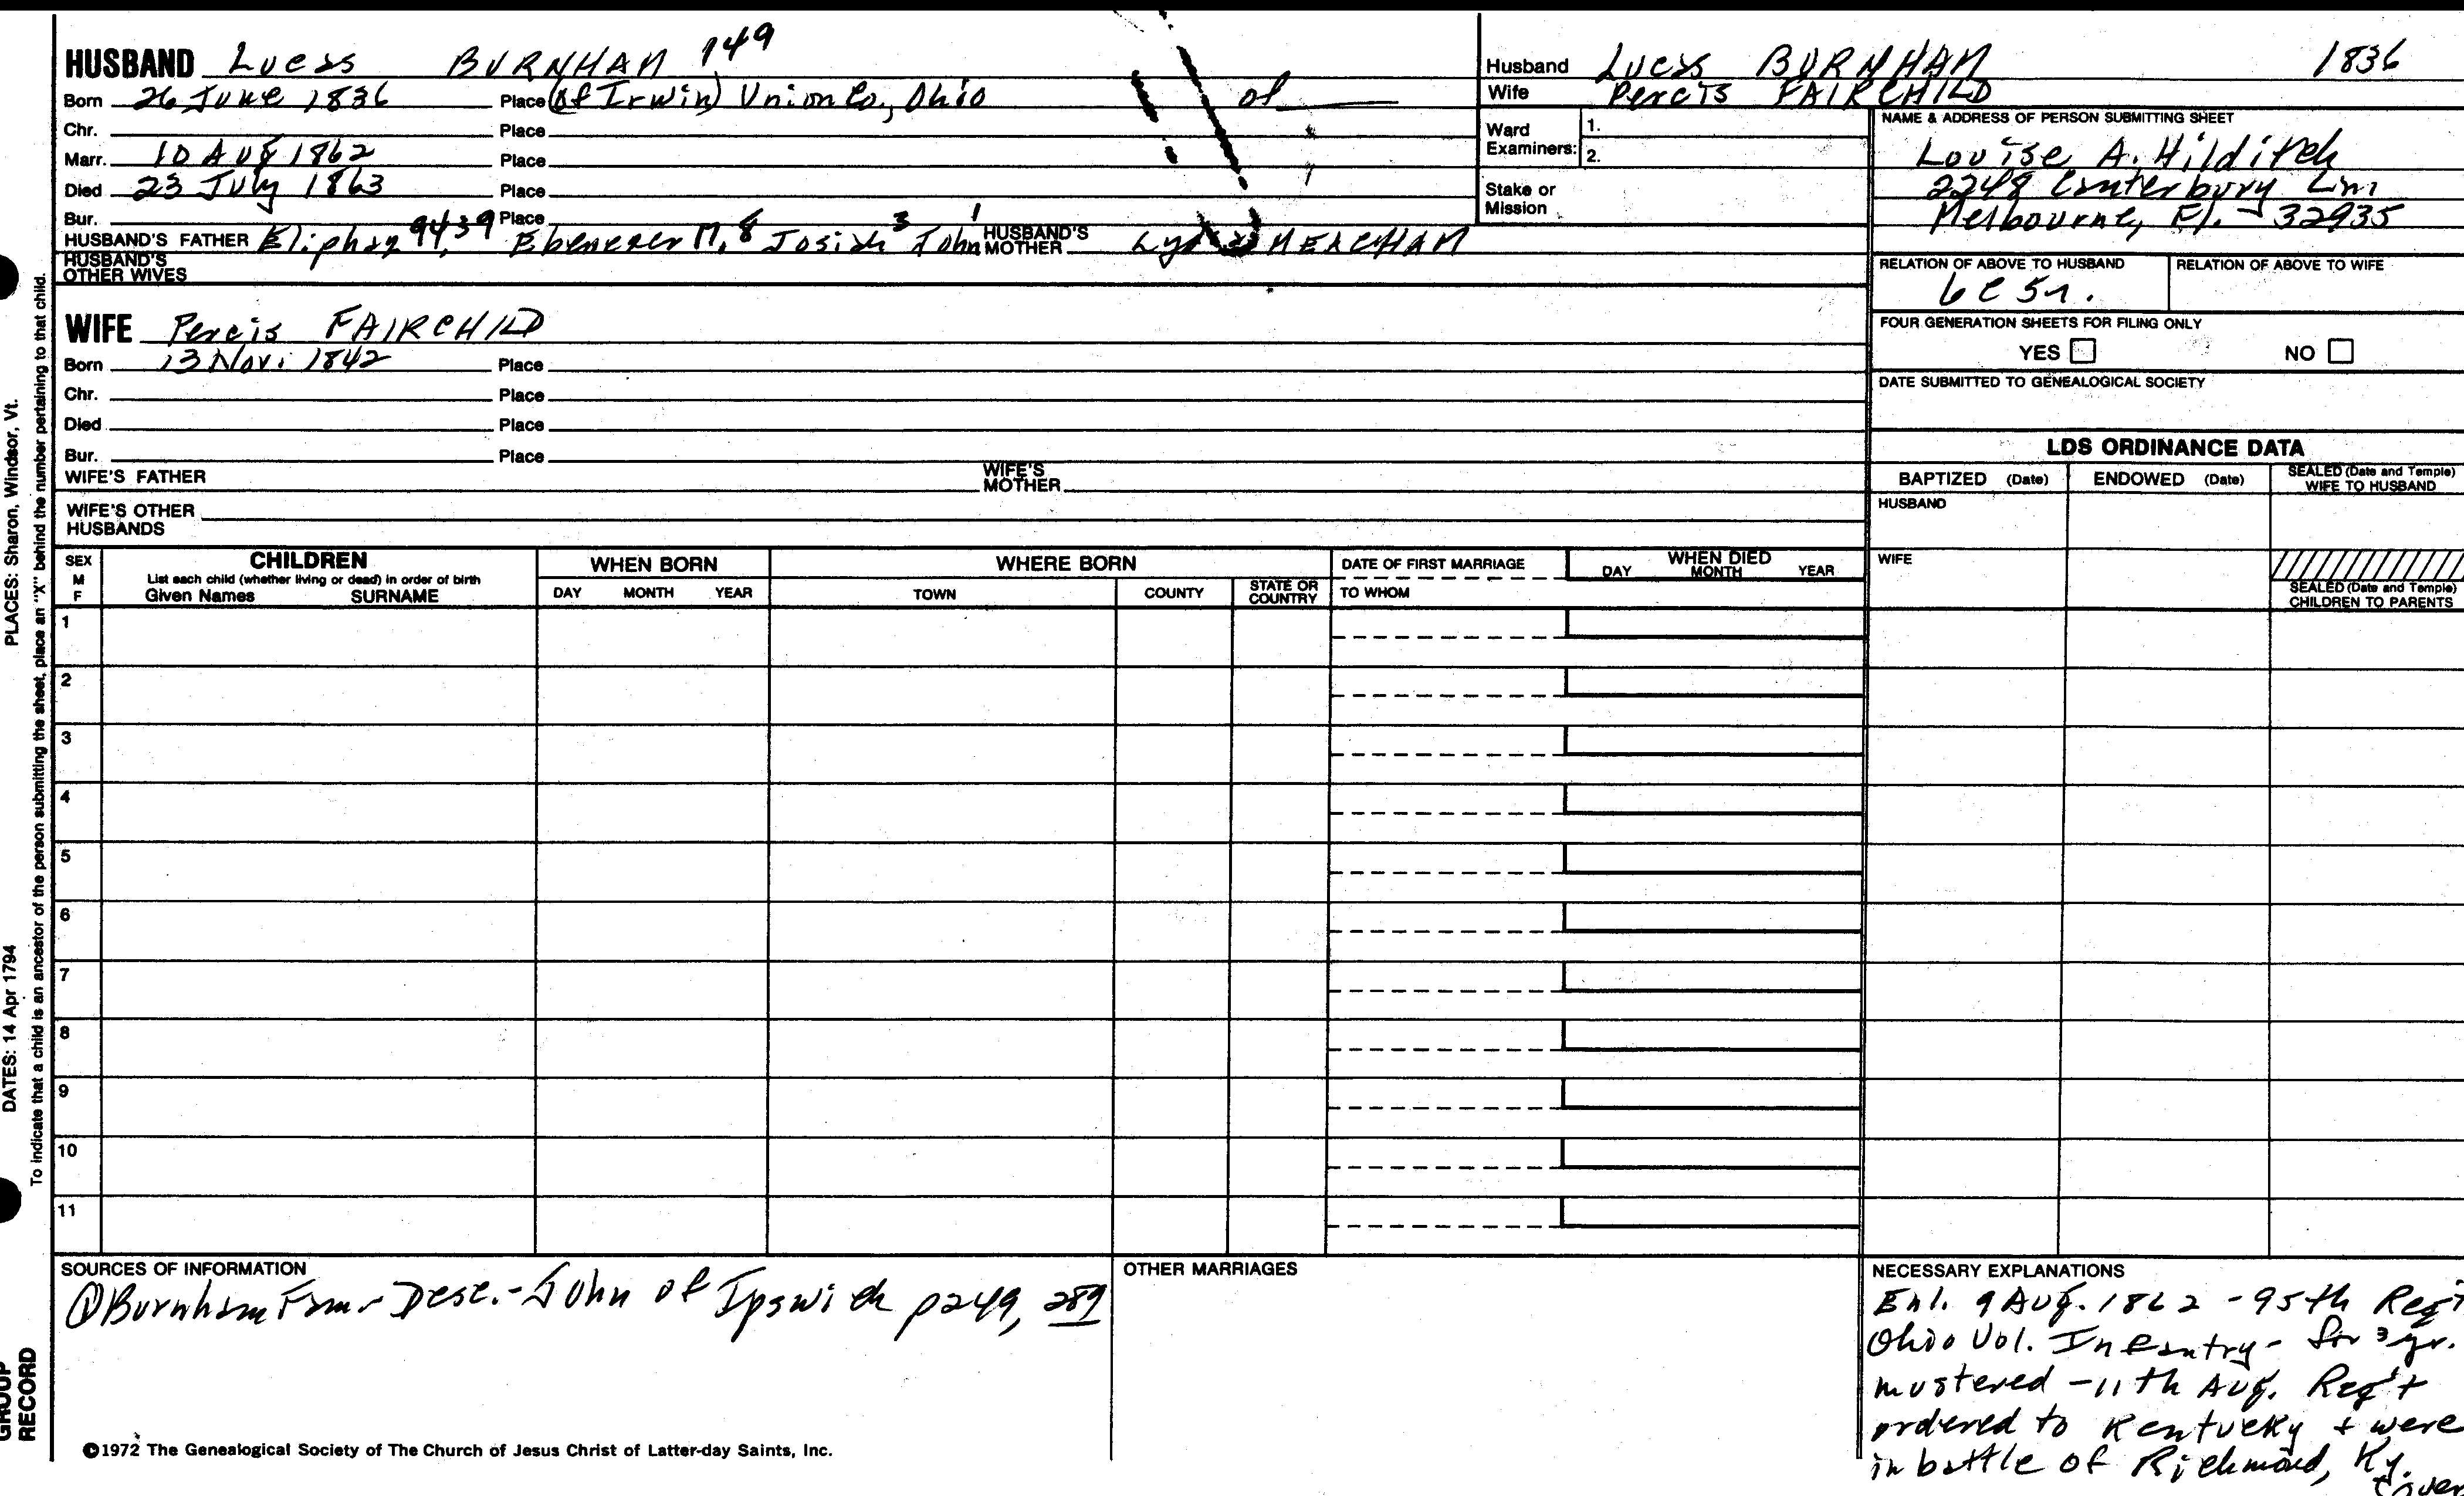 HUSBAND Lucas BURNHAM 149
Born 26 June 1836 Place (of Irwin) Union Co., Ohio of
Chr. Place
Marr. 10 Aug 1862 Place
Died 23 July 1863 Place
Bur. Place
HUSBAND'S FATHER Eliphaz 9439, Ebenezer M.8 Josiah3 John1 HUSBAND'S MOTHER MEACHAM
HUSBAND'S OTHER WIVES
WIFE Percis FAIRCHILD
Born 13 Nov. 1842 Place
Chr. Place
Died Place
Bur. Place
WIFE'S FATHER WIFE'S MOTHER
WIFE'S OTHER HUSBANDS
Husband Lucas BURNHAM 1836
Wife Percis FAIRCHILD
Ward Examiners: 1.
2.
Stake or Mission
NAME & ADDRESS OF PERSON SUBMITTING SHEET
Louise A. Hilditch
2248 Canterbury Ln
Melbourne, Fl. - 32935
RELATION OF ABOVE TO HUSBAND RELATION OF ABOVE TO WIFE
6C5R.
FOUR GENERATION SHEETS FOR FILING ONLY
YES NO
DATE SUBMITTED TO GENEALOGICAL SOCIETY
LDS ORDINANCE DATA
BAPTIZED (Date) ENDOWED (Date) SEALED (Date and Temple) WIFE TO HUSBAND
HUSBAND
WIFE
SEALED (Date and Temple) CHILDREN TO PARENTS
SEX M F
CHILDREN
List each child (whether living or dead) in order of birth
Given Names SURNAME
WHEN BORN
DAY MONTH YEAR
WHERE BORN
TOWN COUNTY STATE OR COUNTRY
DATE OF FIRST MARRIAGE
TO WHOM
WHEN DIED
DAY MONTH YEAR
1
2
3
4
5
6
7
8
9
10
11
SOURCES OF INFORMATION
① Burnham Fam - Desc. - John of Ipswich p249, 289
OTHER MARRIAGES
NECESSARY EXPLANATIONS
Enl. 9 Aug. 1862 - 95th Reg't
Ohio Vol. Infantry - for 3 yr.
mustered - 11th Aug. Reg't
ordered to Kentucky + were
in battle of Richmond, Ky.
©1972 The Genealogical Society of The Church of Jesus Christ of Latter-day Saints, Inc.
PLACES: Sharon, Windsor, Vt.
DATES: 14 Apr 1794
To indicate that a child is an ancestor of the person submitting the sheet, place an "X" behind the number pertaining to that child.
GROUP
RECORD